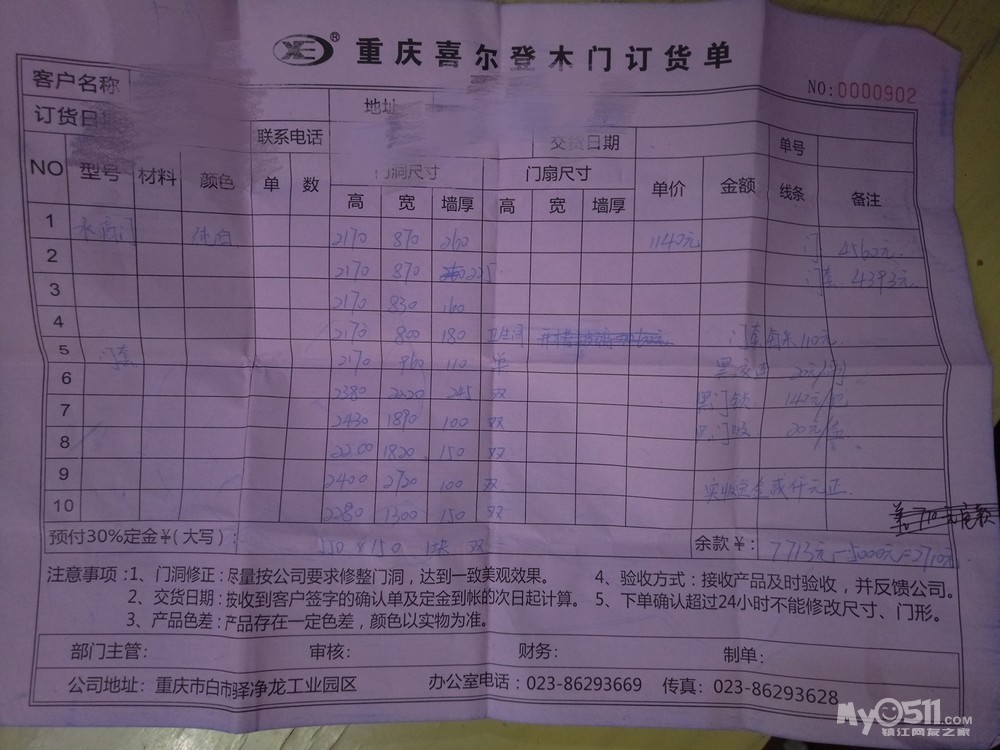 XE ® 重庆喜尔登木门订货单
NO:0000902
客户名称 地址
订货日期 联系电话 交货日期 单号
NO 型号 材料 颜色 单 数 门洞尺寸 门扇尺寸 单价 金额 线条 备注
高 宽 墙厚 高 宽 墙厚
1 2170 870 260 1140元 门 4562元
2 2170 870 225 门套 4393元
3 2170 830 160
4 2170 800 180 卫生间 门套每米110元
5 门套 2170 960 110 单
6 2380 2220 245 双 门锁 140元/把
7 2430 1890 100 双 门吸 20元/
8 2200 1820 150 双
9 2400 2720 100 双 实收定金贰仟元正
10 2280 1300 150 双
预付30%定金¥(大写): 550×150 1块 双 余款¥: 7713元-5000元=2710元
注意事项:1、门洞修正:尽量按公司要求修整门洞,达到一致美观效果。 4、验收方式:接收产品及时验收,并反馈公司。
2、交货日期:按收到客户签字的确认单及定金到帐的次日起计算。 5、下单确认超过24小时不能修改尺寸、门形。
3、产品色差:产品存在一定色差,颜色以实物为准。
部门主管: 审核: 财务: 制单:
公司地址:重庆市白市驿净龙工业园区 办公室电话:023-86293669 传真:023-86293628
My0511.COM
镇江网友之家